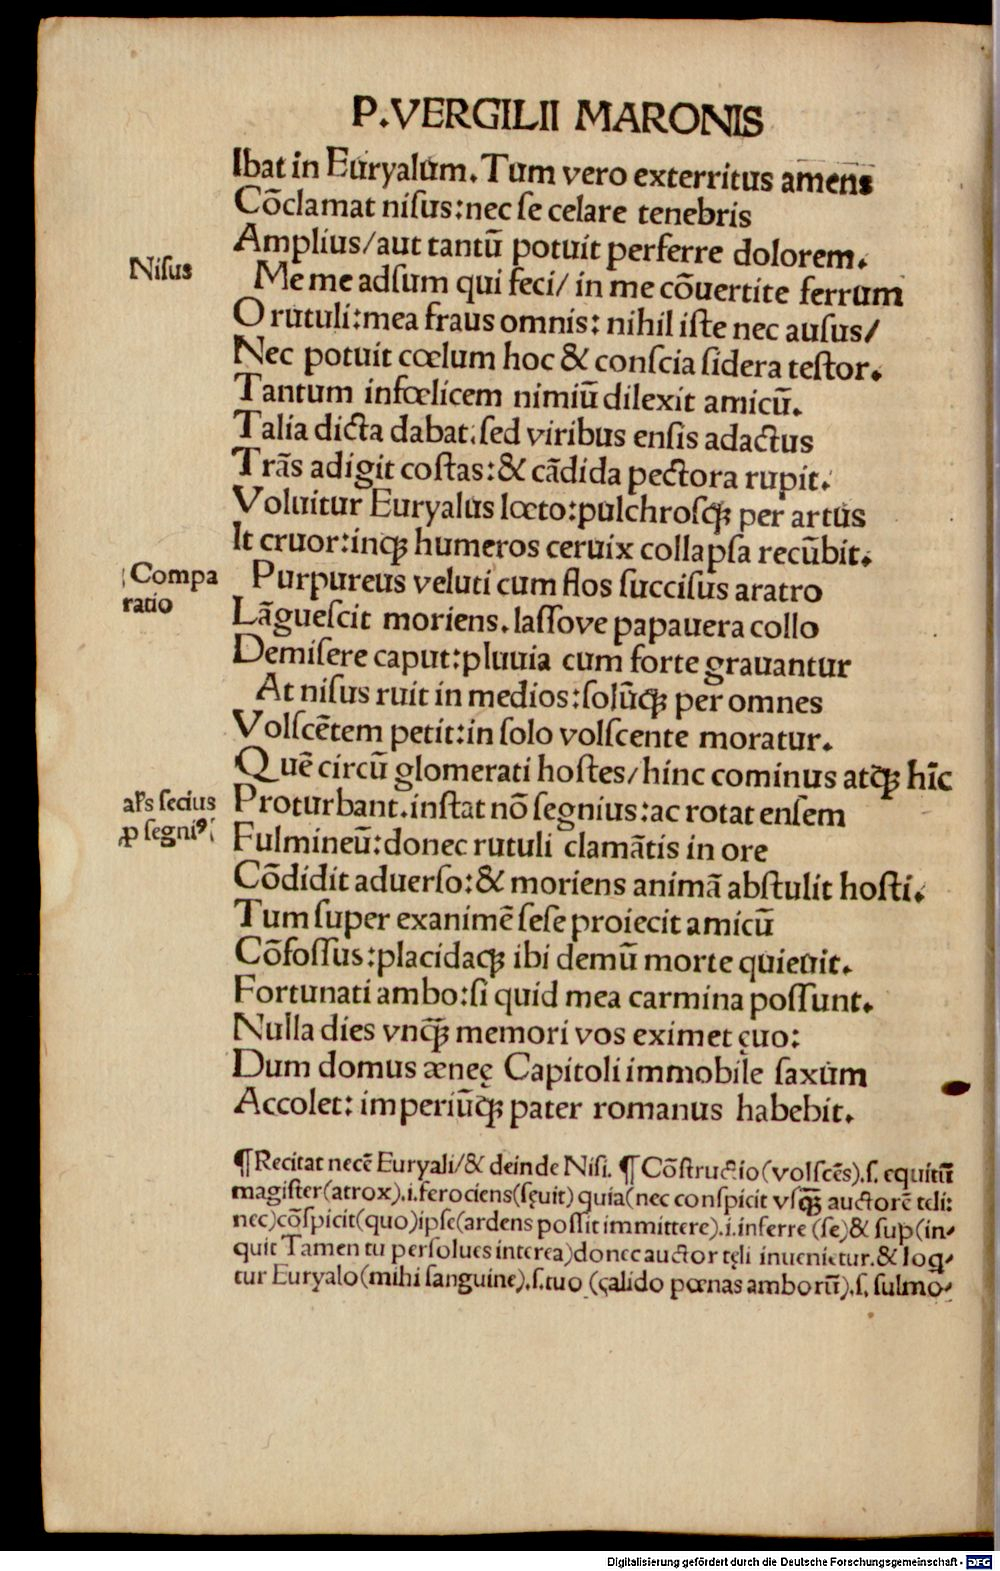 P.VERGILII MARONIS
Ibat in Euryalum. Tum vero exterritus amens
Cōclamat niſus:nec ſe celare tenebris
Amplius/aut tantū potuit perferre dolorem.
Niſus
Me me adſum qui feci/ in me cōuertite ferrum
O rutuli:mea fraus omnis: nihil iſte nec auſus/
Nec potuit cœlum hoc & conſcia ſidera teſtor.
Tantum infœlicem nimiū dilexit amicū.
Talia dicta dabat.ſed viribus enſis adactus
Trās adigit coſtas:& cādida pectora rupit.
Voluitur Euryalus lœto:pulchroſqꝫ per artus
It cruor:inqꝫ humeros ceruix collapſa recūbit.
Compa
ratio
Purpureus veluti cum flos ſucciſus aratro
Lāgueſcit moriens.laſſove papauera collo
Demiſere caput:pluuia cum forte grauantur
At niſus ruit in medios:ſolūqꝫ per omnes
Volſcētem petit:in ſolo volſcente moratur.
Quē circū glomerati hoſtes/hinc cominus atqꝫ hīc
al's ſecius
ꝓ ſegniꝰ
Proturbant.inſtat nō ſegnius:ac rotat enſem
Fulmineū:donec rutuli clamātis in ore
Cōdidit aduerſo:& moriens animā abſtulit hoſti.
Tum ſuper exanimē ſeſe proiecit amicū
Cōfoſſus:placidaqꝫ ibi demū morte quieuit.
Fortunati ambo:ſi quid mea carmina poſſunt.
Nulla dies vnqꝫ̄ memori vos eximet ęuo:
Dum domus æneę Capitoli immobile ſaxum
Accolet: imperiūqꝫ pater romanus habebit.
¶Recitat necē Euryali/& deinde Niſi. ¶ Cōſtructio(volſcēs).ſ. equitū
magiſter(atrox).i.ferociens(ſęuit) quia(nec conſpicit vſqꝫ̄ auctorē teli:
nec)cōſpicit(quo)ipſe(ardens poſſit immittere).i.inferre (ſe)& ſup(in⸗
quit Tamen tu perſolues interea)donec auctor tęli inuenietur.& loq⸗
tur Euryalo(mihi ſanguine).ſ.tuo (çalido pœnas amborū).ſ. ſulmo⸗
Digitalisierung gefördert durch die Deutsche Forschungsgemeinschaft - DFG